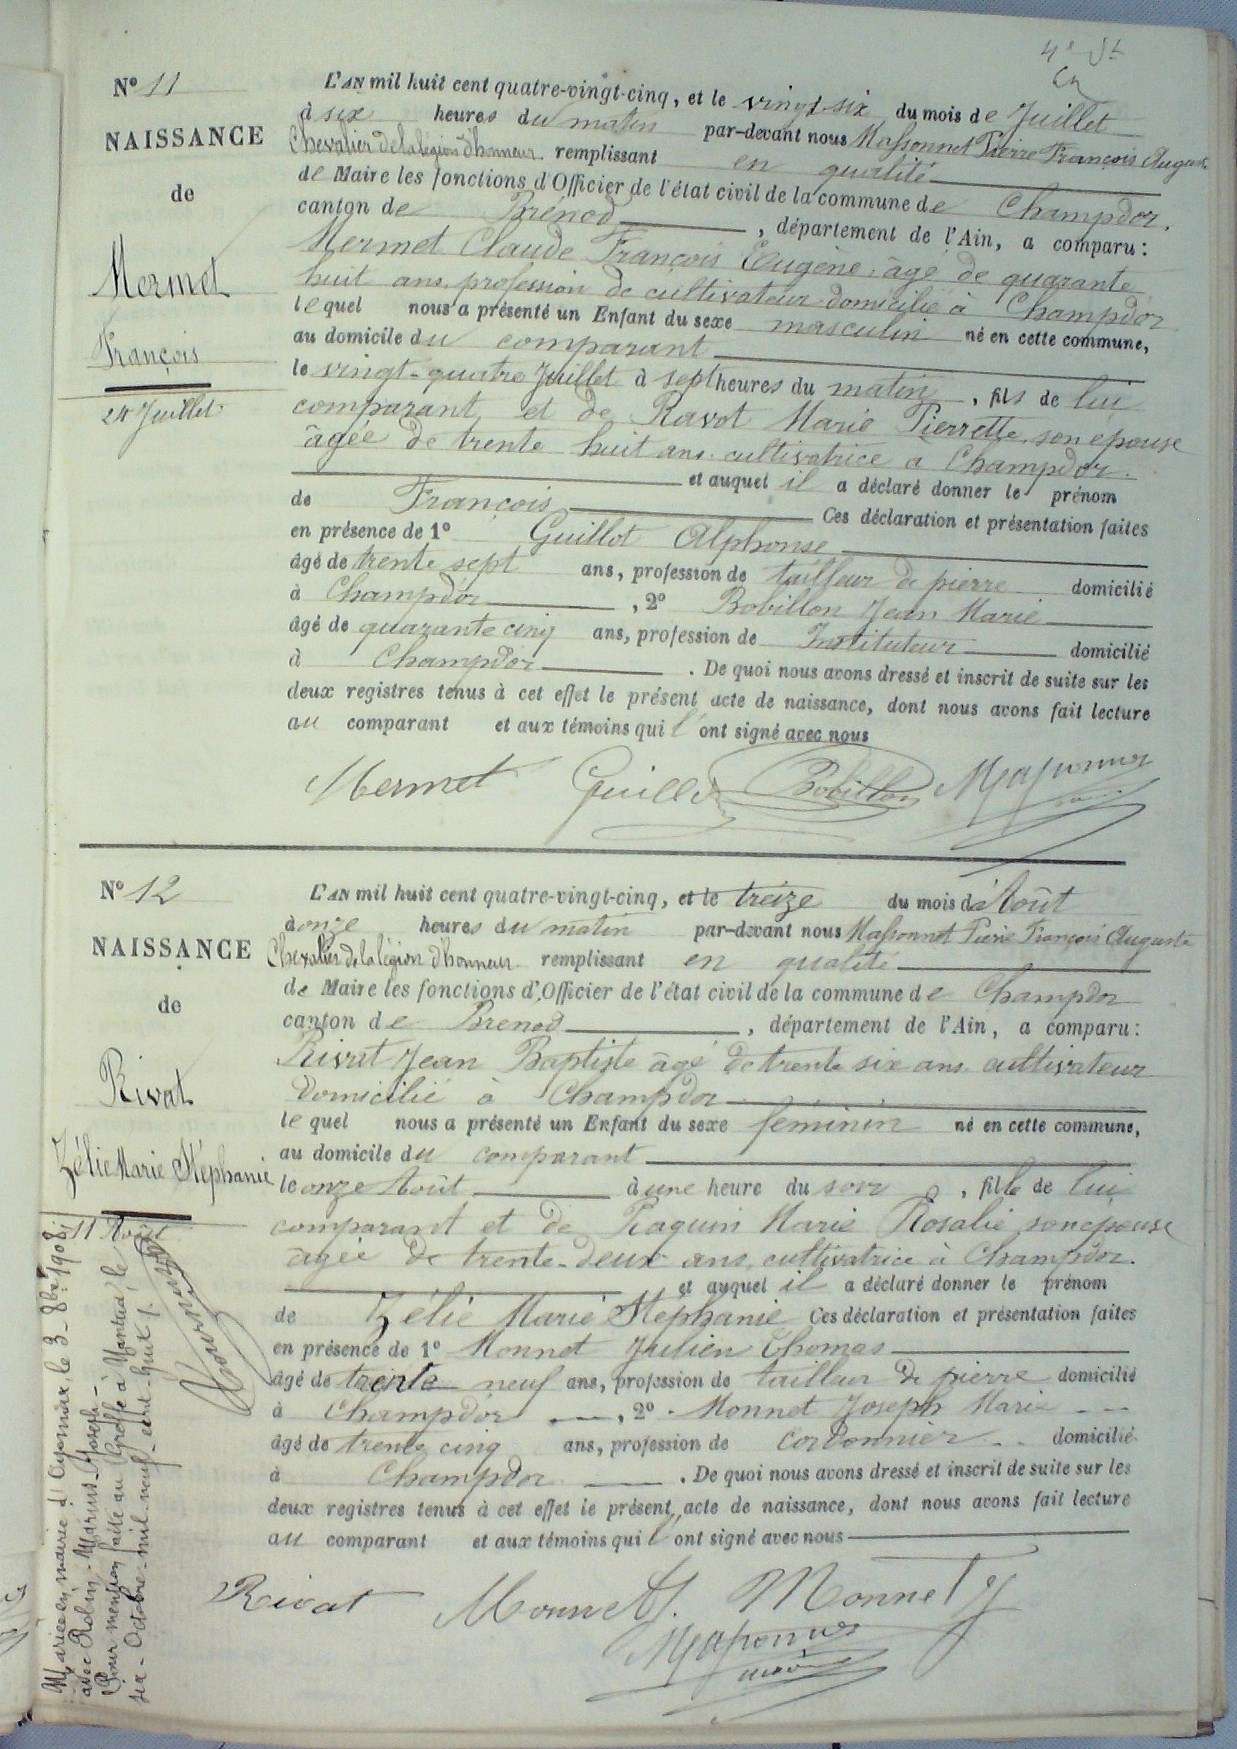 N° 11
NAISSANCE
de
Mermet
François
24 Juillet
L'AN mil huit cent quatre-vingt-cinq, et le vingt six du mois de Juillet
à six heures du matin par-devant nous Massonnet Pierre François Auguste
Chevalier de la légion d'honneur remplissant en qualité
de Maire les fonctions d'Officier de l'état civil de la commune de Champdor,
canton de Brénod, département de l'Ain, a comparu:
Mermet Claude François Eugène, âgé de quarante
huit ans, profession de cultivateur domicilié à Champdor
le quel nous a présenté un Enfant du sexe masculin né en cette commune,
au domicile du comparant
le vingt-quatre Juillet à sept heures du matin, fils de lui
comparant et de Ravot Marie Pierrette son épouse
âgée de trente huit ans cultivatrice à Champdor.
et auquel il a déclaré donner le prénom
de François Ces déclaration et présentation faites
en présence de 1° Guillot Alphonse
âgé de trente sept ans, profession de tailleur de pierre domicilié
à Champdor, 2° Bobillon Jean Marie
âgé de quarante cinq ans, profession de Instituteur domicilié
à Champdor. De quoi nous avons dressé et inscrit de suite sur les
deux registres tenus à cet effet le présent acte de naissance, dont nous avons fait lecture
au comparant et aux témoins qui l'ont signé avec nous
Mermet Guillot Bobillon Massonnet
N° 12
NAISSANCE
de
Rivat
Zélie Marie Stéphanie
11 Août
L'AN mil huit cent quatre-vingt-cinq, et le treize du mois d'Août
à onze heures du matin par-devant nous Massonnet Pierre François Auguste
Chevalier de la légion d'honneur remplissant en qualité
de Maire les fonctions d'Officier de l'état civil de la commune de Champdor
canton de Brenod, département de l'Ain, a comparu:
Rivat Jean Baptiste âgé de trente six ans cultivateur
domicilié à Champdor
le quel nous a présenté un Enfant du sexe féminin né en cette commune,
au domicile du comparant
le onze Août à une heure du soir, fille de lui
comparant et de Raquin Marie Rosalie son épouse
âgée de trente-deux ans, cultivatrice à Champdor.
et auquel il a déclaré donner le prénom
de Zélie Marie Stephanie Ces déclaration et présentation faites
en présence de 1° Monnet Julien Thomas
âgé de trente neuf ans, profession de tailleur de pierre domicilié
à Champdor, 2° Monnet Joseph Marie
âgé de trente cinq ans, profession de cordonnier domicilié
à Champdor. De quoi nous avons dressé et inscrit de suite sur les
deux registres tenus à cet effet le présent acte de naissance, dont nous avons fait lecture
au comparant et aux témoins qui l'ont signé avec nous
Rivat Monnet J. Monnet J
Massonnet
maire
Mariée en mairie d'Oyonnax, le 3 8bre 1908
avec Robin-Marius-Joseph-
Pour mention faite au Greffe à Nantua, le
six-Octobre-mil-neuf-cent-huit.